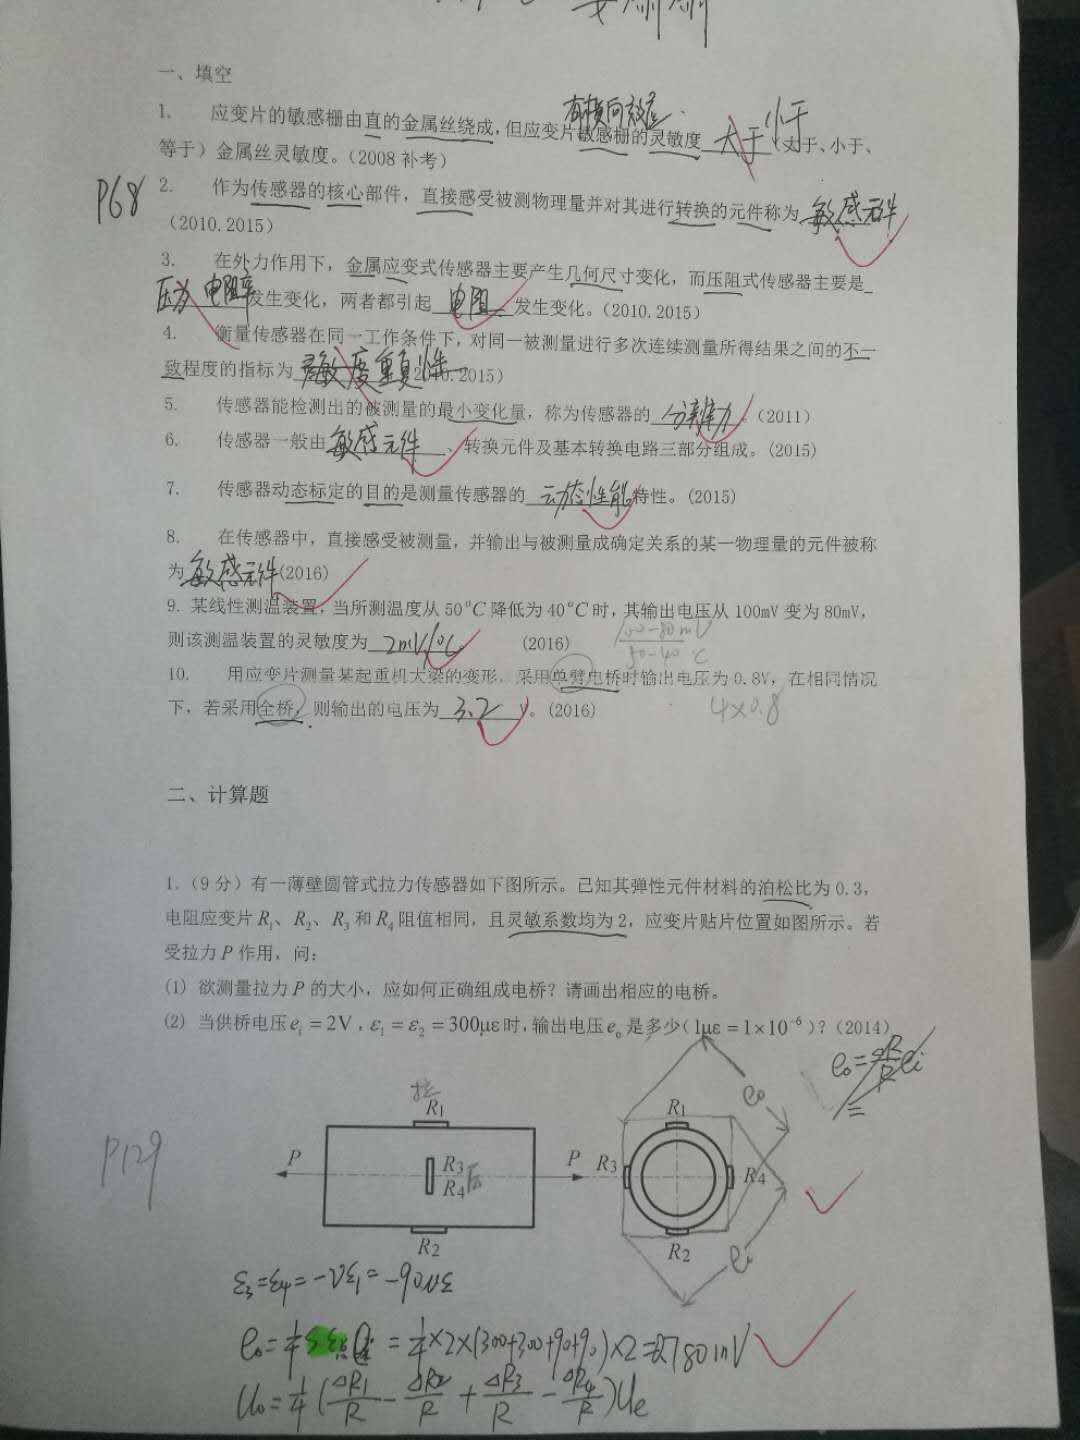 一、填空
有横向效应
1. 应变片的敏感栅由直的金属丝绕成,但应变片敏感栅的灵敏度 大于 小于 (大于、小于、
等于)金属丝灵敏度。(2008 补考)
P68
2. 作为传感器的核心部件,直接感受被测物理量并对其进行转换的元件称为 敏感元件
(2010.2015)
3. 在外力作用下,金属应变式传感器主要产生几何尺寸变化,而压阻式传感器主要是
电阻率发生变化,两者都引起 电阻 发生变化。(2010.2015)
4. 衡量传感器在同一工作条件下,对同一被测量进行多次连续测量所得结果之间的不一
致程度的指标为 灵敏度 重复性 2010.2015)
5. 传感器能检测出的被测量的最小变化量,称为传感器的 分辨力 。(2011)
6. 传感器一般由 敏感元件 、转换元件及基本转换电路三部分组成。(2015)
7. 传感器动态标定的目的是测量传感器的 动态性能 特性。(2015)
8. 在传感器中,直接感受被测量,并输出与被测量成确定关系的某一物理量的元件被称
为 敏感元件 (2016)
9. 某线性测温装置,当所测温度从50°C降低为40°C时,其输出电压从100mV 变为80mV,
则该测温装置的灵敏度为 2mV/°C (2016) 100-80mV
50-40 °C
10. 用应变片测量某起重机大梁的变形,采用单臂电桥时输出电压为 0.8V,在相同情况
下,若采用全桥,则输出的电压为 3.2 V。(2016) 4×0.8
二、计算题
1.(9分)有一薄壁圆管式拉力传感器如下图所示。已知其弹性元件材料的泊松比为 0.3,
电阻应变片R₁、R₂、R₃和R₄阻值相同,且灵敏系数均为2,应变片贴片位置如图所示。若
受拉力P作用,问:
(1) 欲测量拉力P的大小,应如何正确组成电桥?请画出相应的电桥。
(2) 当供桥电压eᵢ=2V,ε₁=ε₂=300με时,输出电压eₒ是多少(1με=1×10⁻⁶)?(2014)
e₀=ΔR/R eᵢ
=
拉
R₁
P
R₃
R₄
压
P
R₂
R₁
R₃
R₄
R₂
e₀
eᵢ
P129
ε₃=ε₄=-νε₁=-90με
e₀=¼ = ¼×2×(300+300+90+90)×2=780mV
U₀=¼(ΔR₁/R-ΔR₂/R+ΔR₃/R-ΔR₄/R)Ue